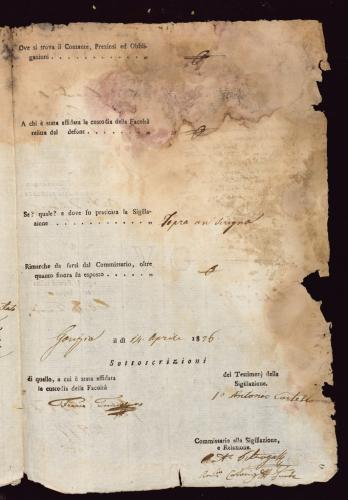 Ove si trova il Contante, Preziosi ed Obbli-
gazioni . . . . . . . . . . . . . „
A chi è stata affidata la custodia della Facoltà
relitta dal defont. . . . . . . . . „
Se? quale? e dove fu praticata la Sigilla-
zione . . . . . . . . . . . . . . „ Sopra un
Rimarche da farsi dal Commissario, oltre
quanto finora fu esposto . . . . . . „
Gorizia il dì 14 Aprile 1826
Sottoscrizioni
di quello, a cui è stata affidata
la custodia della Facoltà
dei Testimonj della
Sigilazione.
Antonio
Commissario alla Sigillazione,
e Relazione.